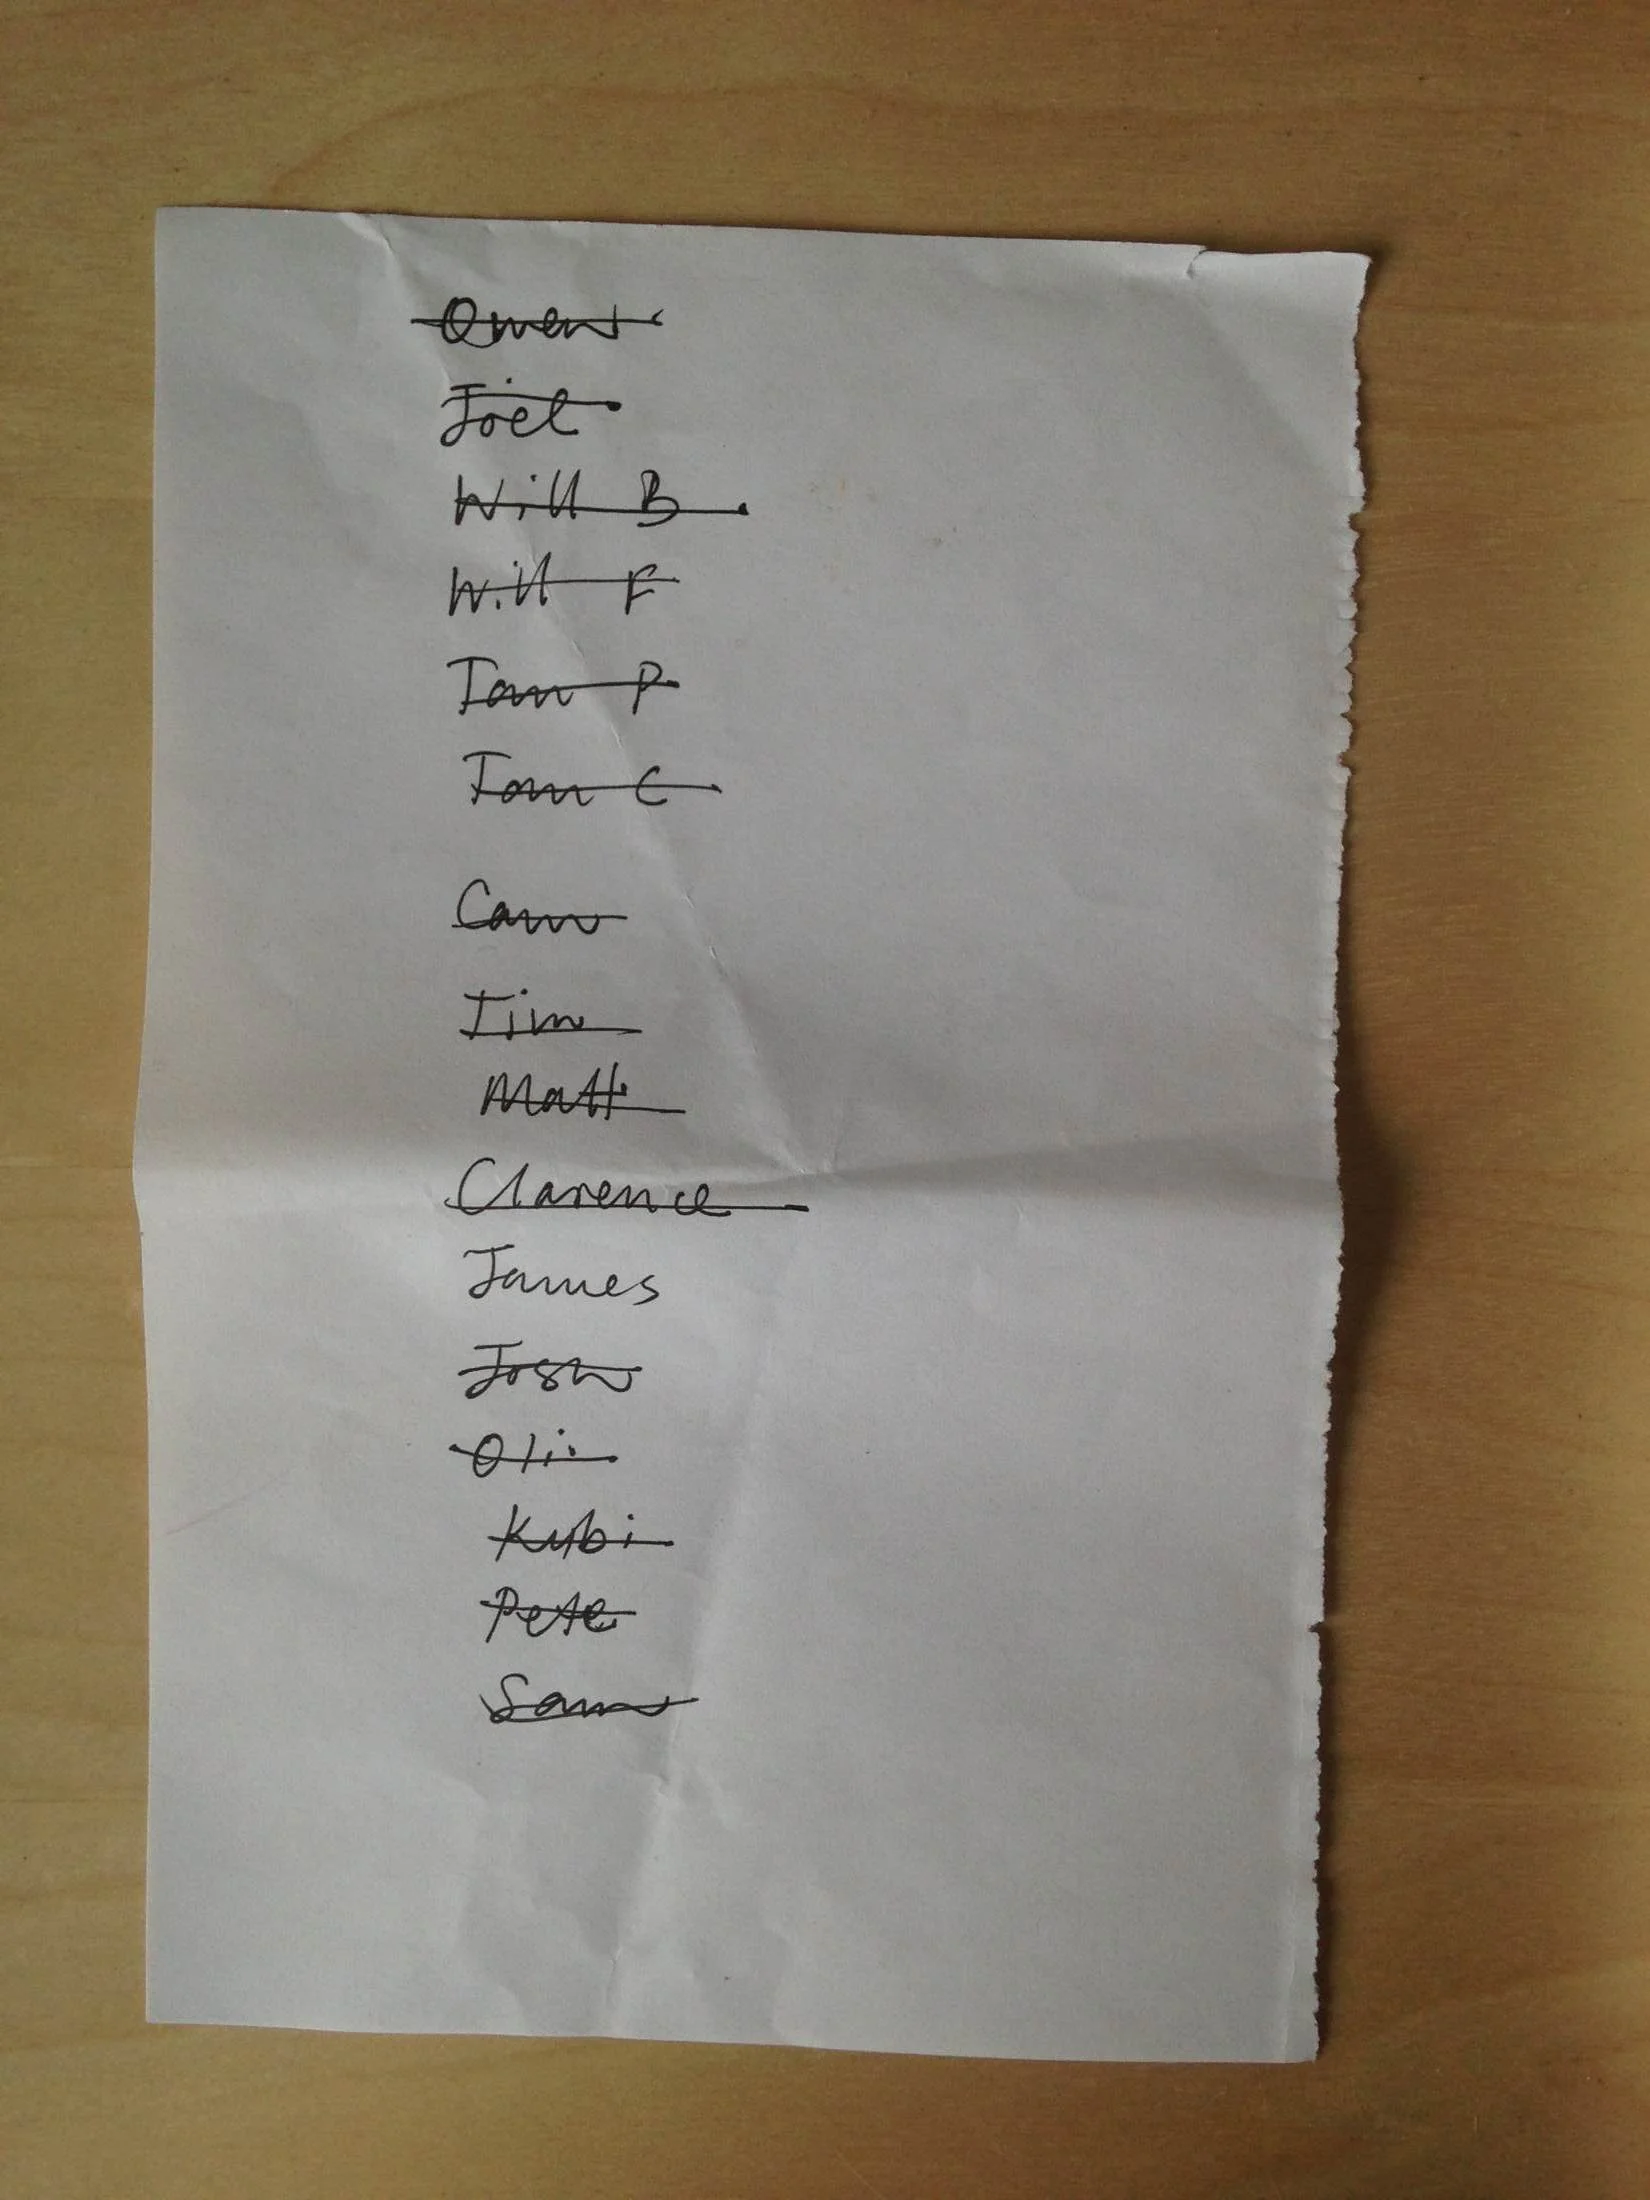 Owen
Joel
Will B
Will F
Tom P
Tom C
Cam
Tim
Matt
Clarence
James
Josh
Oli
Kubi
Pete
Sam